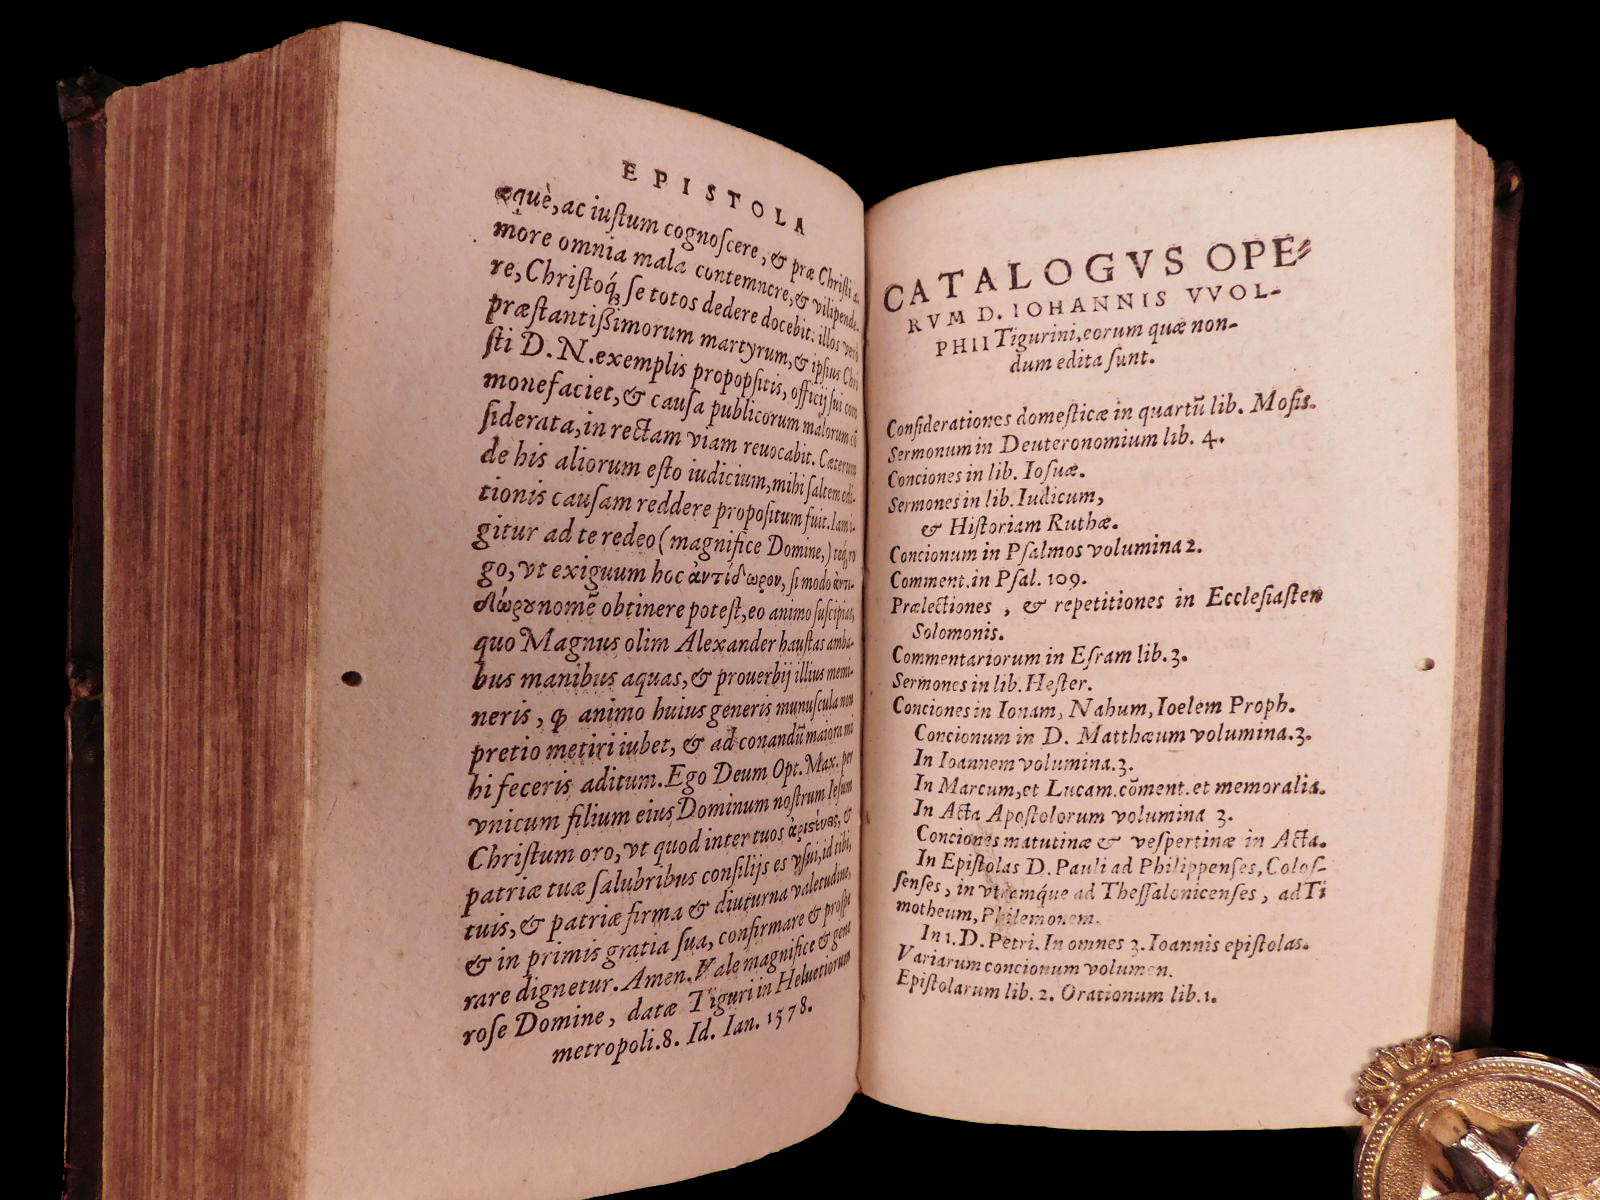 EPISTOLA
æquè, ac iustum cognoscere, & præ Christi a-
more omnia mala contemnere, & vilipende-
re, Christoq́; se totos dedere docebit: illos verò
præstantißimorum martyrum, & ipsius Chri
sti D. N. exemplis propopsitis, officij sui com
monefaciet, & causa publicorum malorum cō
siderata, in rectam viam reuocabit. Cæterum
de his aliorum esto iudicium, mihi saltem edi-
tionis causam reddere propositum fuit. Iam i-
gitur ad te redeo (magnifice Domine,) teq́; ro
go, vt exiguum hoc ἀντίδωρον, si modo ἀντι-
δώρου nomē obtinere potest, eo animo suscipias,
quo Magnus olim Alexander haustas amba-
bus manibus aquas, & prouerbij illius memi-
neris, ꝙ animo huius generis munuscula non
pretio metiri iubet, & ad conandū maiora mi
hi feceris aditum. Ego Deum Opt. Max. per
vnicum filium eius Dominum nostrum Iesum
Christum oro, vt quod inter tuos ἀριστεύεις, &
patriæ tuæ salubribus consilijs es vsui, id tibi,
tuis, & patriæ firma & diuturna valetudine,
& in primis gratia sua, confirmare & prospe
rare dignetur. Amen. Vale magnifice & gene
rose Domine, datæ Tiguri in Heluetiorum
metropoli. 8. Id. Ian. 1578.
CATALOGVS OPE-
RVM D. IOHANNIS VVOL-
PHII Tigurini, eorum quæ non-
dum edita sunt.
Considerationes domesticæ in quartū lib. Mosis.
Sermonum in Deuteronomium lib. 4.
Conciones in lib. Iosuæ.
Sermones in lib. Iudicum,
& Historiam Ruthæ.
Concionum in Psalmos volumina 2.
Comment. in Psal. 109.
Prælectiones, & repetitiones in Ecclesiasten
Solomonis.
Commentariorum in Esram lib. 3.
Sermones in lib. Hester.
Conciones in Ionam, Nahum, Ioelem Proph.
Concionum in D. Matthæum volumina. 3.
In Ioannem volumina. 3.
In Marcum, et Lucam. cōment. et memoralia.
In Acta Apostolorum volumina 3.
Conciones matutinæ & vespertinæ in Acta.
In Epistolas D. Pauli ad Philippenses, Colos-
senses, in vtramq́ue ad Thessalonicenses, ad Ti
motheum, Philemonem.
In 1. D. Petri. In omnes 3. Ioannis epistolas.
Variarum concionum volumen.
Epistolarum lib. 2. Orationum lib. 1.